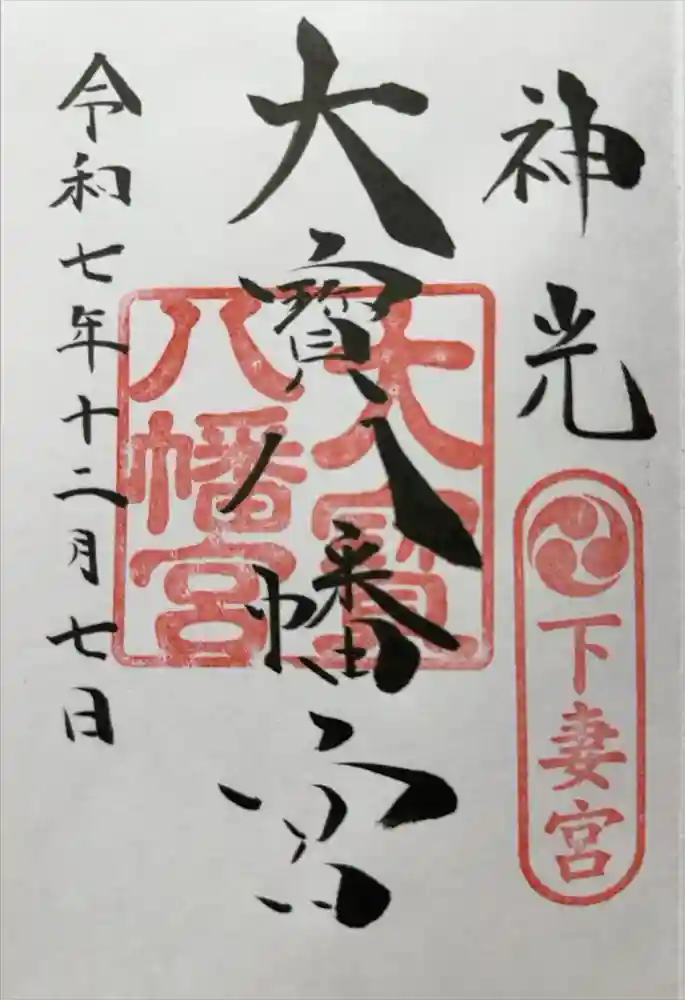 神光
下妻宮
大寶八幡宮
大寶
八幡宮
令和七年十二月七日